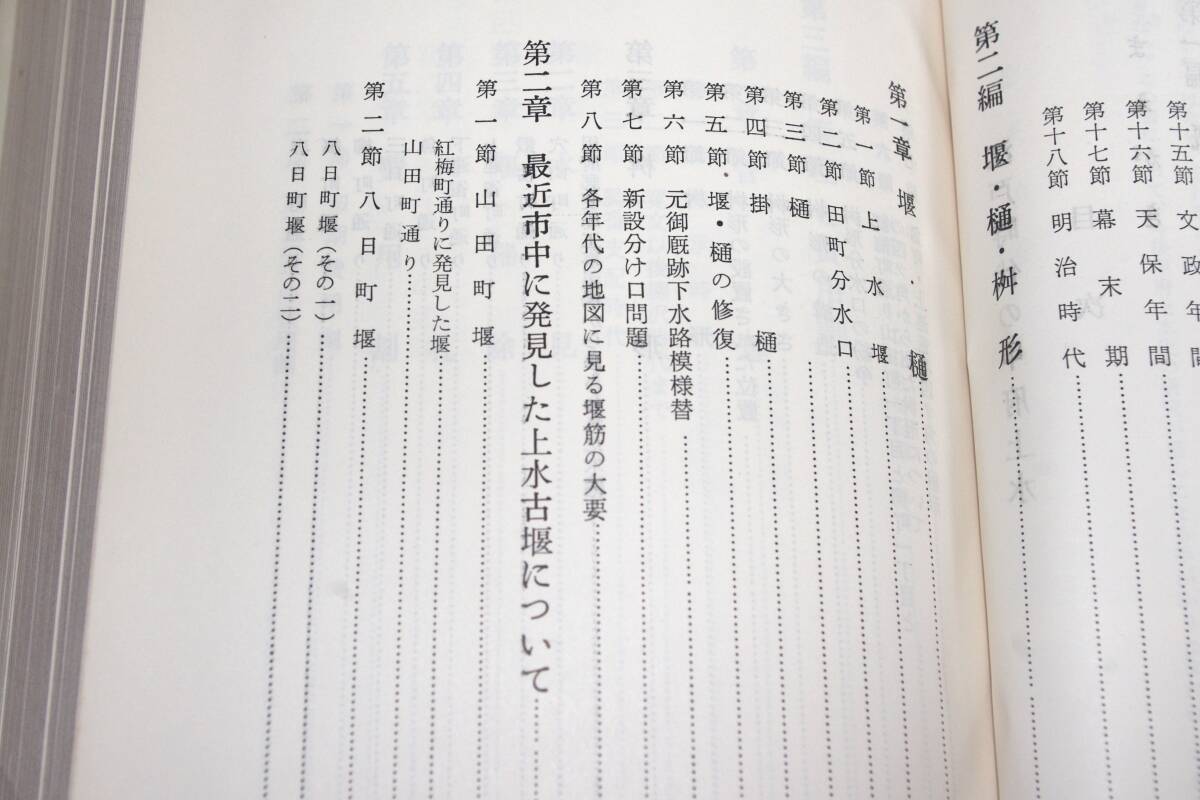 第十五節 文政年間
第十六節 天保年間
第十七節 幕末期
第十八節 明治時代
第二編 堰・樋・桝形
第一章 堰樋
第一節 上水堰
第二節 田町分水口
第三節 樋
第四節 掛樋
第五節 堰・樋の修復
第六節 元御厩跡下水路模様替
第七節 新設分け口問題
第八節 各年代の地図に見る堰筋の大要
第二章 最近市中に発見した上水古堰について
第一節 山田町堰
紅梅町通りに発見した堰
山田町通り
第二節 八日町堰
八日町堰(その一)
八日町堰(その二)